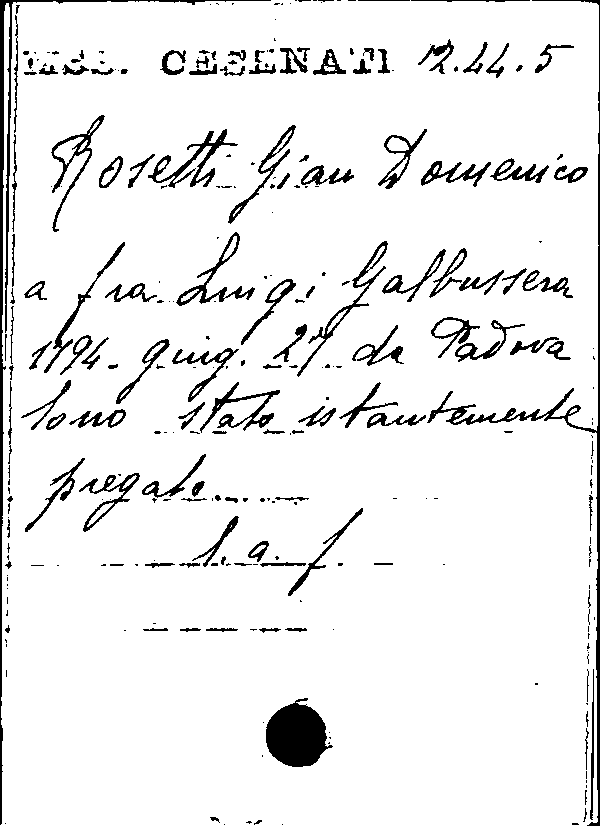 MSS. CESENATI 12.44.5
Rosetti Gian Domenico
a fra Luigi Galbussera
1794. giug. 27 da Padova
Sono stato istantemente
pregato......
l. a. f.